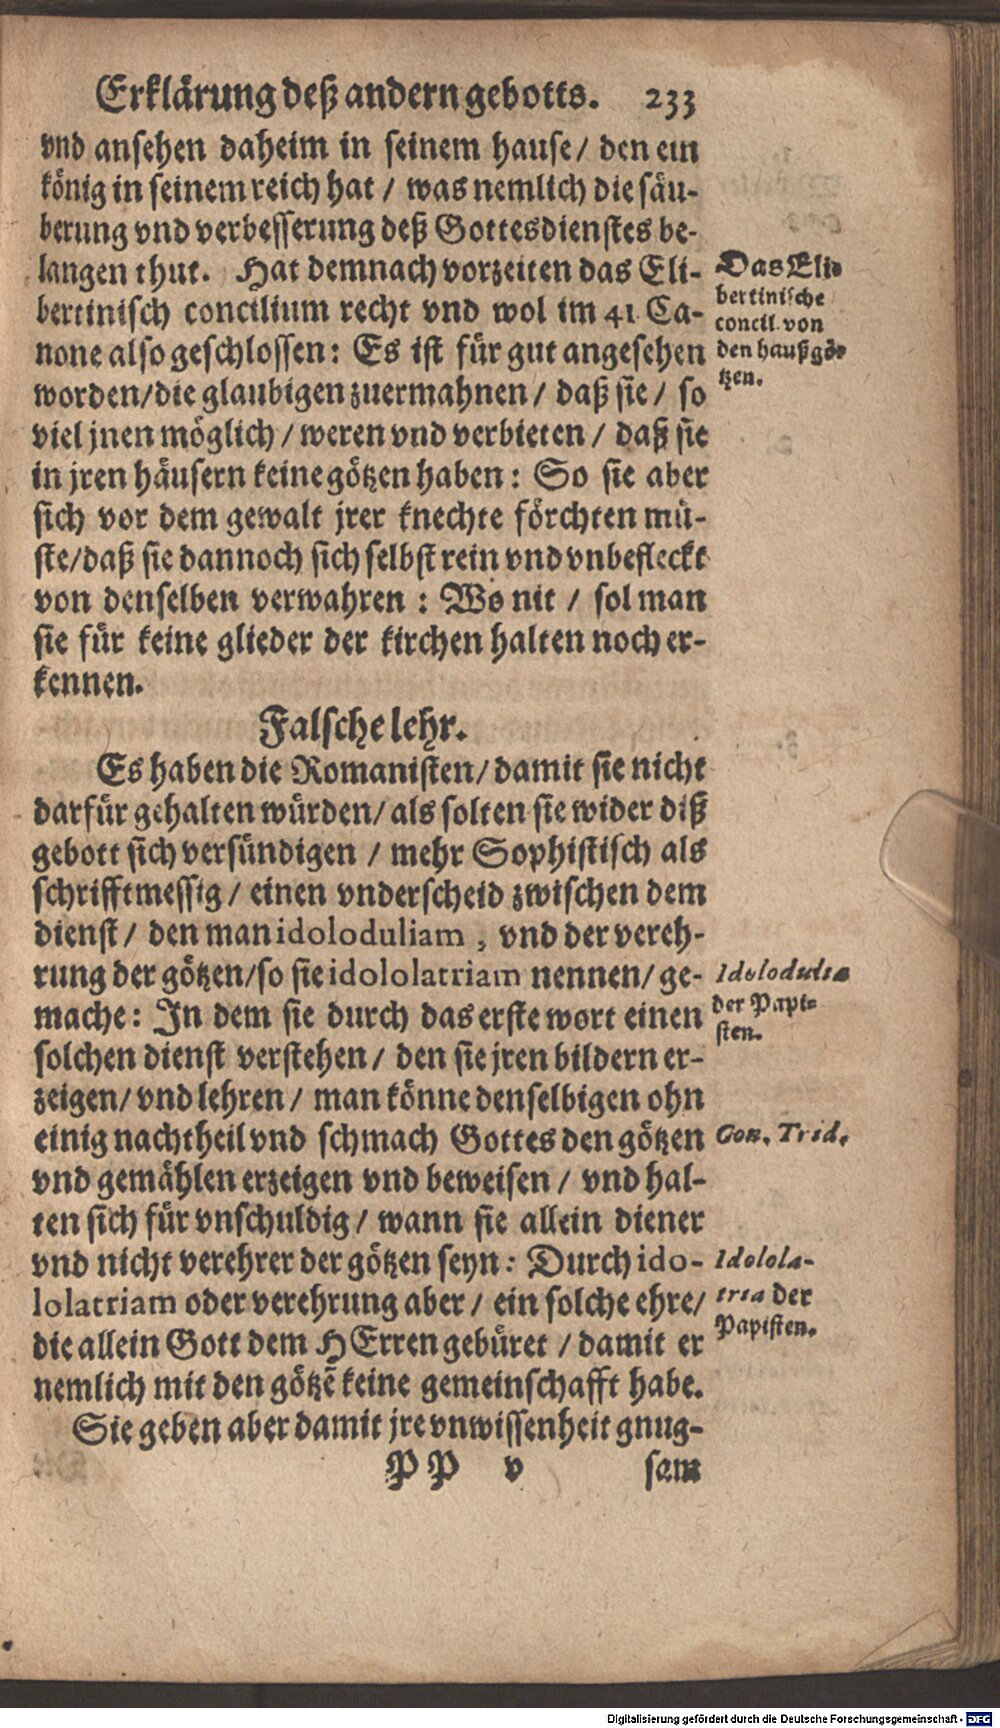 Erklärung deß andern gebotts. 233
vnd ansehen daheim in seinem hause/ den ein
könig in seinem reich hat / was nemlich die säu-
berung vnd verbesserung deß Gottesdienstes be-
langen thut. Hat demnach vorzeiten das Eli-
bertinisch concilium recht vnd wol im 41 Ca-
none also geschlossen: Es ist für gut angesehen
worden/die glaubigen zuermahnen/ daß sie/ so
viel jnen möglich/ weren vnd verbieten/ daß sie
in jren häusern keine götzen haben: So sie aber
sich vor dem gewalt jrer knechte förchten mü-
ste/daß sie dannoch sich selbst rein vnd vnbefleckt
von denselben verwahren: Wo nit / sol man
sie für keine glieder der kirchen halten noch er-
kennen.
Das Eli-
bertinische
concil. von
den haußgö-
tzen.
Falsche lehr.
Es haben die Romanisten/ damit sie nicht
darfür gehalten würden/ als solten sie wider diß
gebott sich versündigen / mehr Sophistisch als
schrifftmessig/ einen vnderscheid zwischen dem
dienst/ den man idoloduliam, vnd der vereh-
rung der götzen/so sie idololatriam nennen/ ge-
mache: In dem sie durch das erste wort einen
solchen dienst verstehen/ den sie jren bildern er-
zeigen/ vnd lehren/ man könne denselbigen ohn
einig nachtheil vnd schmach Gottes den götzen
vnd gemählen erzeigen vnd beweisen/ vnd hal-
ten sich für vnschuldig/ wann sie allein diener
vnd nicht verehrer der götzen seyn: Durch ido-
lolatriam oder verehrung aber/ ein solche ehre/
die allein Gott dem HErren gebüret / damit er
nemlich mit den götzē keine gemeinschafft habe.
Sie geben aber damit jre vnwissenheit gnug-
Idolodulia
der Papi-
sten.
Con. Trid.
Idolola-
tria der
Papisten.
PP v sam
Digitalisierung gefördert durch die Deutsche Forschungsgemeinschaft - DFG